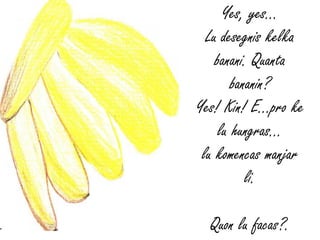 Yes, yes...
Lu desegnis kelka
banani. Quanta
bananin?
Yes! Kin! E...pro ke
lu hungras...
lu komencas manjar
li.
Quon lu facas?.